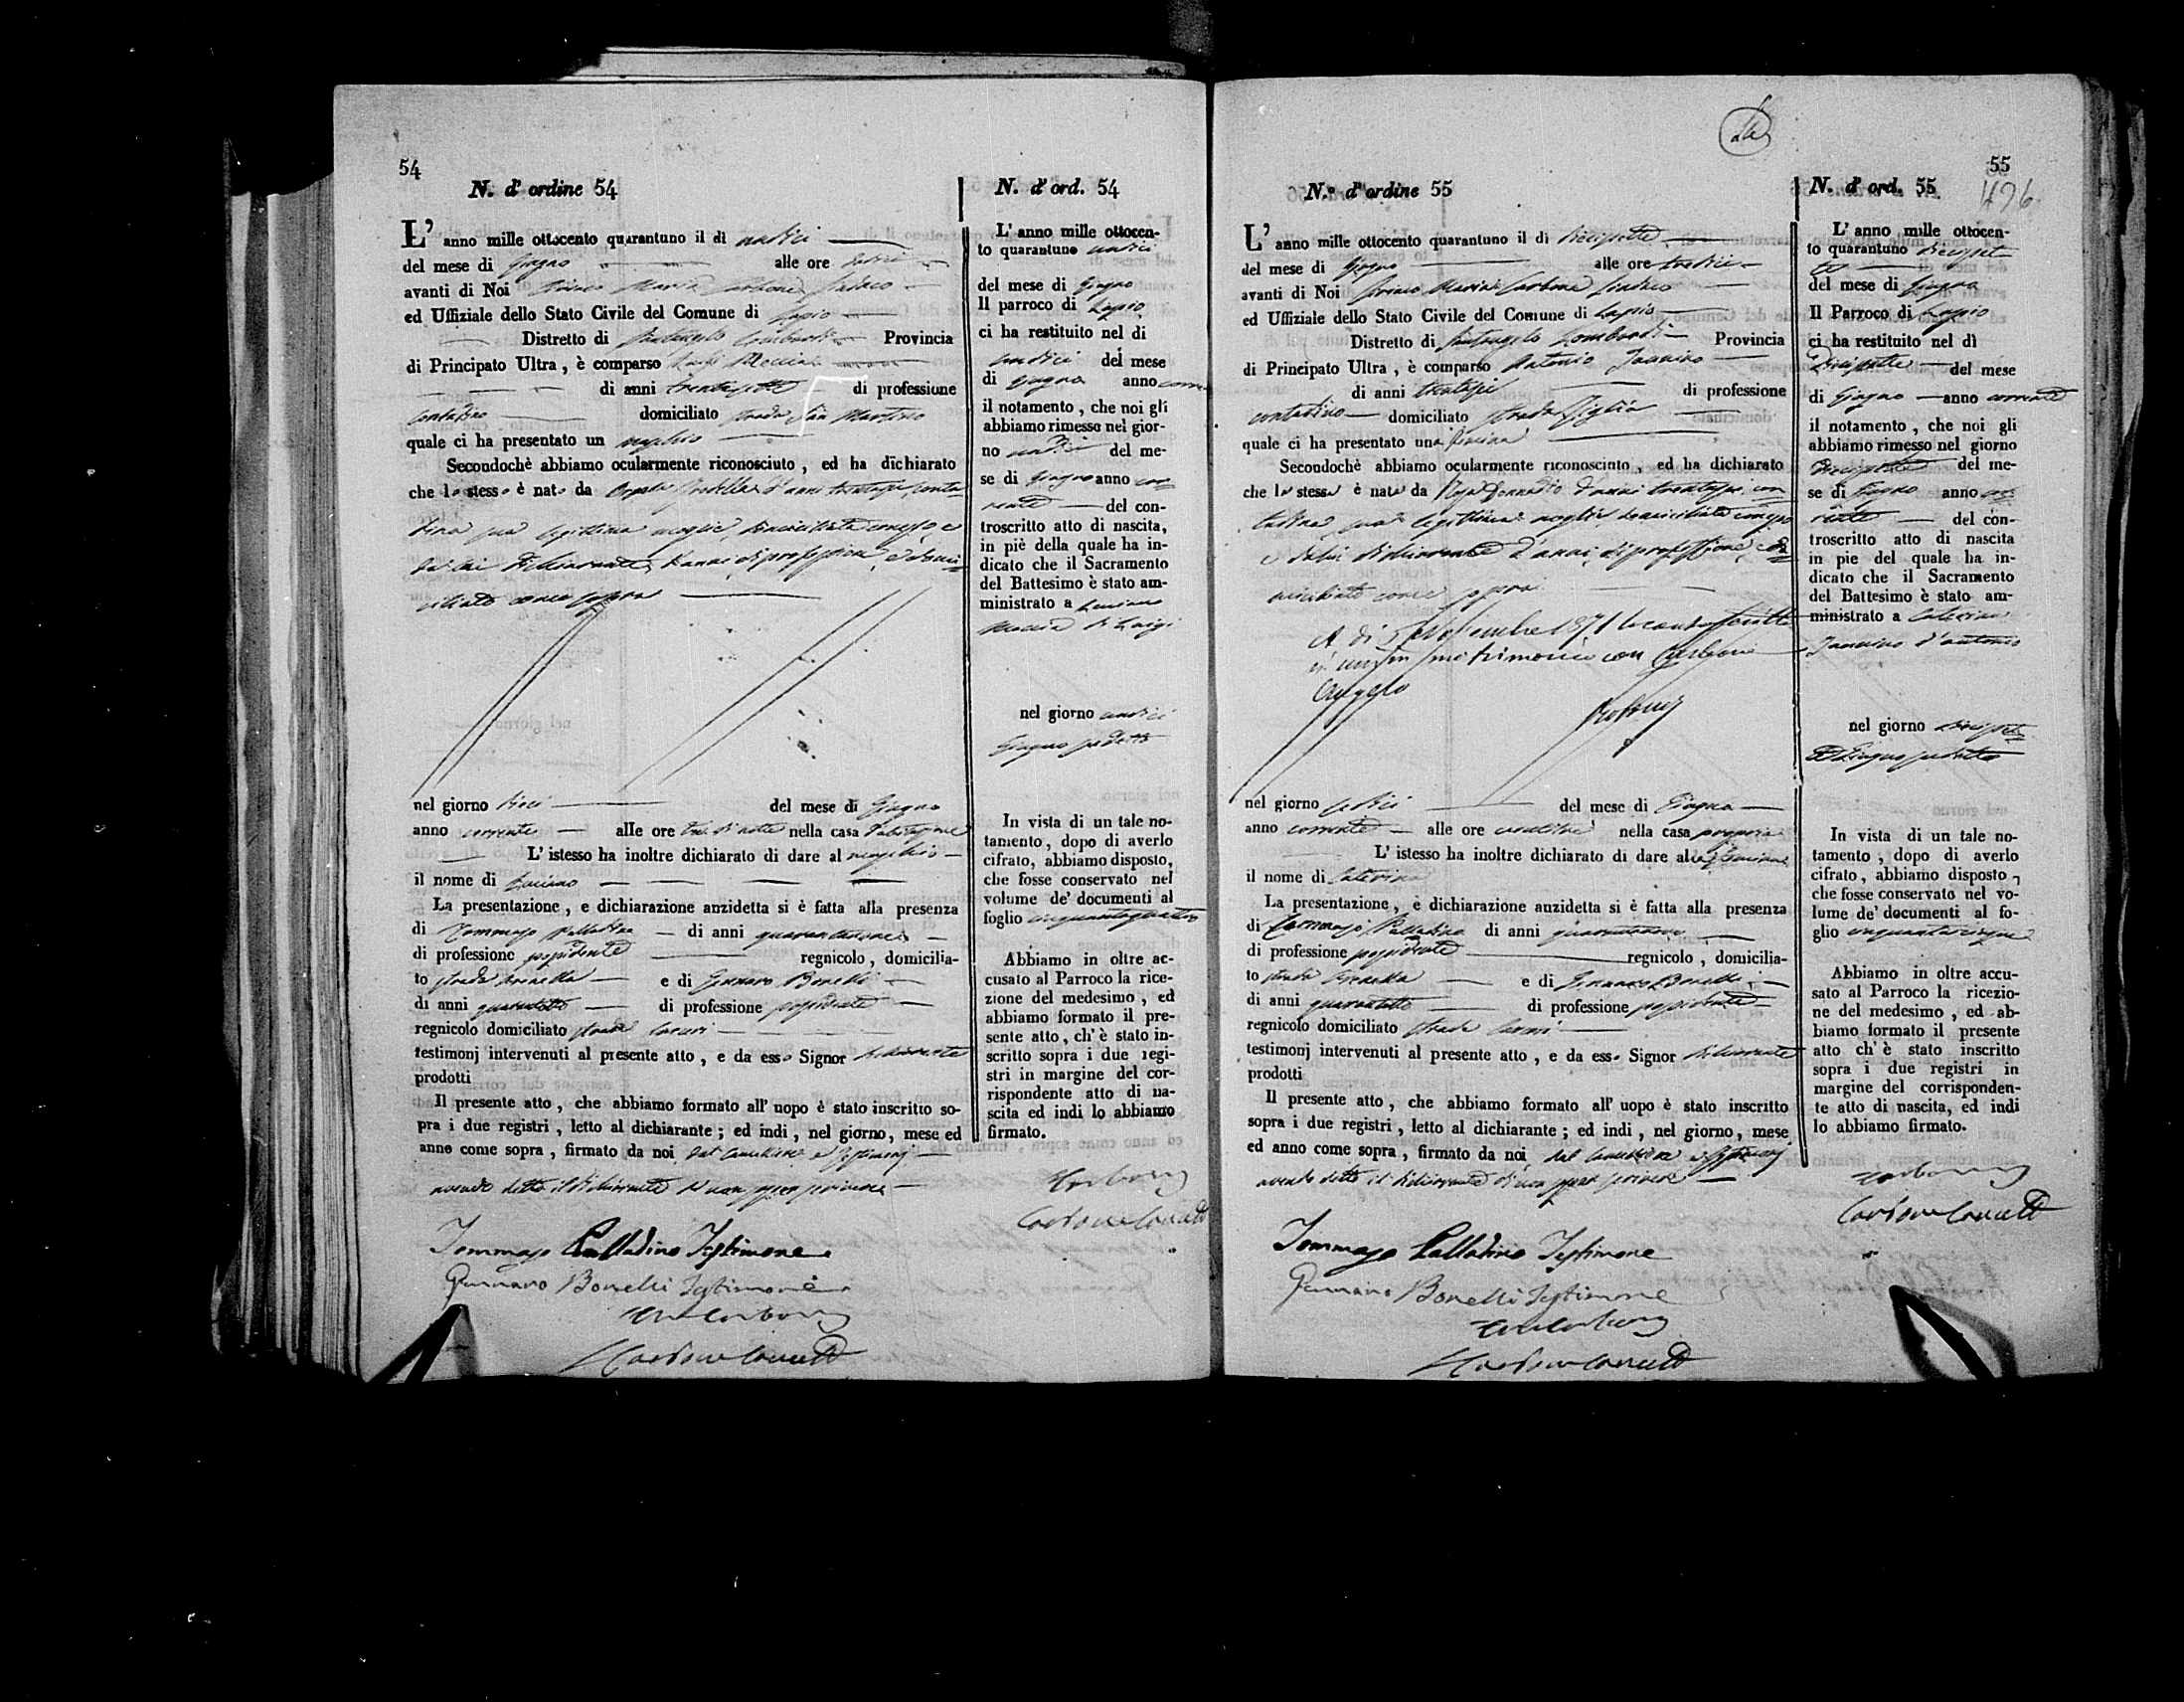 54
N. d' ordine 54
L' anno mille ottocento quarantuno il dì undici
del mese di Giugno alle ore
avanti di Noi Maria Carbone Sindaco
ed Uffiziale dello Stato Civile del Comune di Lapio
Distretto di Santangelo Lombardi Provincia
di Principato Ultra, è comparso Luigi Moccia
di anni trentasette di professione
contadino domiciliato strada San Martino
quale ci ha presentato un maschio
Secondochè abbiamo ocularmente riconosciuto, ed ha dichiarato
che lo stesso è nato da d'anni conta
dina sua legittima moglie domiciliata con esso, e
da lui dichiarante d'anni, di professione, e domi
ciliato come sopra
nel giorno dieci del mese di Giugno
anno corrente alle ore tre di notte nella casa d'abitazione
L' istesso ha inoltre dichiarato di dare al maschio
il nome di Luciano
La presentazione, e dichiarazione anzidetta si è fatta alla presenza
di Tommaso Palladino di anni
di professione possidente regnicolo, domicilia-
to strada e di Gennaro Bonelli
di anni quarantotto di professione possidente
regnicolo domiciliato strada
testimonj intervenuti al presente atto, e da esso Signor dichiarante
prodotti
Il presente atto, che abbiamo formato all' uopo è stato inscritto so-
pra i due registri, letto al dichiarante; ed indi, nel giorno, mese ed
anno come sopra, firmato da noi dal Cancelliere e Testimonj
avendo detto il dichiarante di non saper scrivere
Tommaso Palladino Testimone
Gennaro Bonelli Testimone
Carbone
N. d' ord. 54
L' anno mille ottocen-
to quarantuno undici
del mese di Giugno
Il parroco di Lapio
ci ha restituito nel di
undici del mese
di Giugno anno
il notamento, che noi gli
abbiamo rimesso nel gior-
no undici del me-
se di Giugno anno cor
rente del con-
troscritto atto di nascita,
in piè della quale ha in-
dicato che il Sacramento
del Battesimo è stato am-
ministrato a Luciano
Moccia di Luigi
nel giorno undici
Giugno sudetto
In vista di un tale no-
tamento, dopo di averlo
cifrato, abbiamo disposto,
che fosse conservato nel
volume de' documenti al
foglio cinquantaquattro
Abbiamo in oltre ac-
cusato al Parroco la rice-
zione del medesimo, ed
abbiamo formato il pre-
sente atto, ch' è stato in-
scritto sopra i due regi-
stri in margine del cor-
rispondente atto di na-
scita ed indi lo abbiamo
firmato.
Carbone
55
N.º d' ordine 55
L' anno mille ottocento quarantuno il di diecisette
del mese di Giugno alle ore tredici
avanti di Noi Maria Carbone Sindaco
ed Uffiziale dello Stato Civile del Comune di Lapio
Distretto di Santangelo Lombardi Provincia
di Principato Ultra, è comparso Antonio Iannino
di anni trentasei di professione
contadino domiciliato strada
quale ci ha presentato una femina
Secondochè abbiamo ocularmente riconosciuto, ed ha dichiarato
che la stessa è nata da Rosa d'anni trentasei con
tadina sua legittima moglie domiciliata con esso
e da lui dichiarante d'anni, di professione, e do
miciliato come sopra
A di 5 1871 la
matrimonio con Carbone
Angelo
nel giorno sedici del mese di Giugno
anno corrente alle ore nella casa propria
L' istesso ha inoltre dichiarato di dare alla femina
il nome di Caterina
La presentazione, e dichiarazione anzidetta si è fatta alla presenza
di Tommaso Palladino di anni
di professione possidente regnicolo, domicilia-
to strada e di Gennaro Bonelli
di anni quarantotto di professione possidente
regnicolo domiciliato strada
testimonj intervenuti al presente atto, e da esso Signor dichiarante
prodotti
Il presente atto, che abbiamo formato all' uopo è stato inscritto
sopra i due registri, letto al dichiarante; ed indi, nel giorno, mese
ed anno come sopra, firmato da noi dal Cancelliere e Testimonj
avendo detto il dichiarante di non saper scrivere
Tommaso Palladino Testimone
Gennaro Bonelli Testimone
Carbone
N. d' ord. 55
L' anno mille ottocen-
to quarantuno diciset
te
del mese di Giugno
Il Parroco di Lapio
ci ha restituito nel dì
dicisette del mese
di Giugno anno corrente
il notamento, che noi gli
abbiamo rimesso nel giorno
dicisette del me-
se di Giugno anno cor
rente del con-
troscritto atto di nascita
in pie del quale ha in-
dicato che il Sacramento
del Battesimo è stato am-
ministrato a Caterina
Iannino d'Antonio
nel giorno diciset
te Giugno sudetto
In vista di un tale no-
tamento, dopo di averlo
cifrato, abbiamo disposto,
che fosse conservato nel vo-
lume de' documenti al fo-
glio cinquantacinque
Abbiamo in oltre accu-
sato al Parroco la ricezio-
ne del medesimo, ed ab-
biamo formato il presente
atto ch' è stato inscritto
sopra i due registri in
margine del corrisponden-
te atto di nascita, ed indi
lo abbiamo firmato.
Carbone